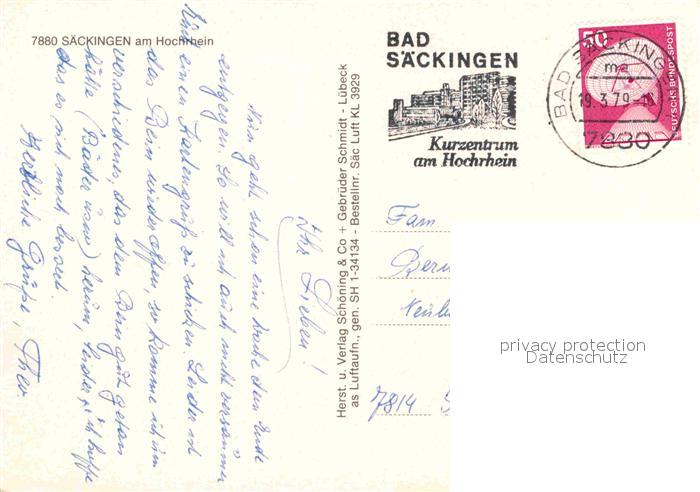 7880 SÄCKINGEN am Hochrhein
BAD
SÄCKINGEN
Kurzentrum
am Hochrhein
BAD SÄCKINGEN
ma
19.3.79
7880
50
DEUTSCHE BUNDESPOST
Herst. u. Verlag Schöning & Co + Gebrüder Schmidt - Lübeck
as Luftaufn., gen. SH 1-34134 - Bestellnr. Säc Luft KL 3929
Ihr Lieben!
Nun geht schon eine Woche dem Ende
entgegen. So will ich auch nicht versäumen
einen Kartengruß zu schicken. Leider ist
das Bein wieder offen, so komme ich um
verschiedenes, das dem Bein gut getan
hätte (Bäder usw) herum, leider, ich hoffe
das es sich noch bessert.
Herzliche Grüße, Theo
Fam
7814
privacy protection
Datenschutz